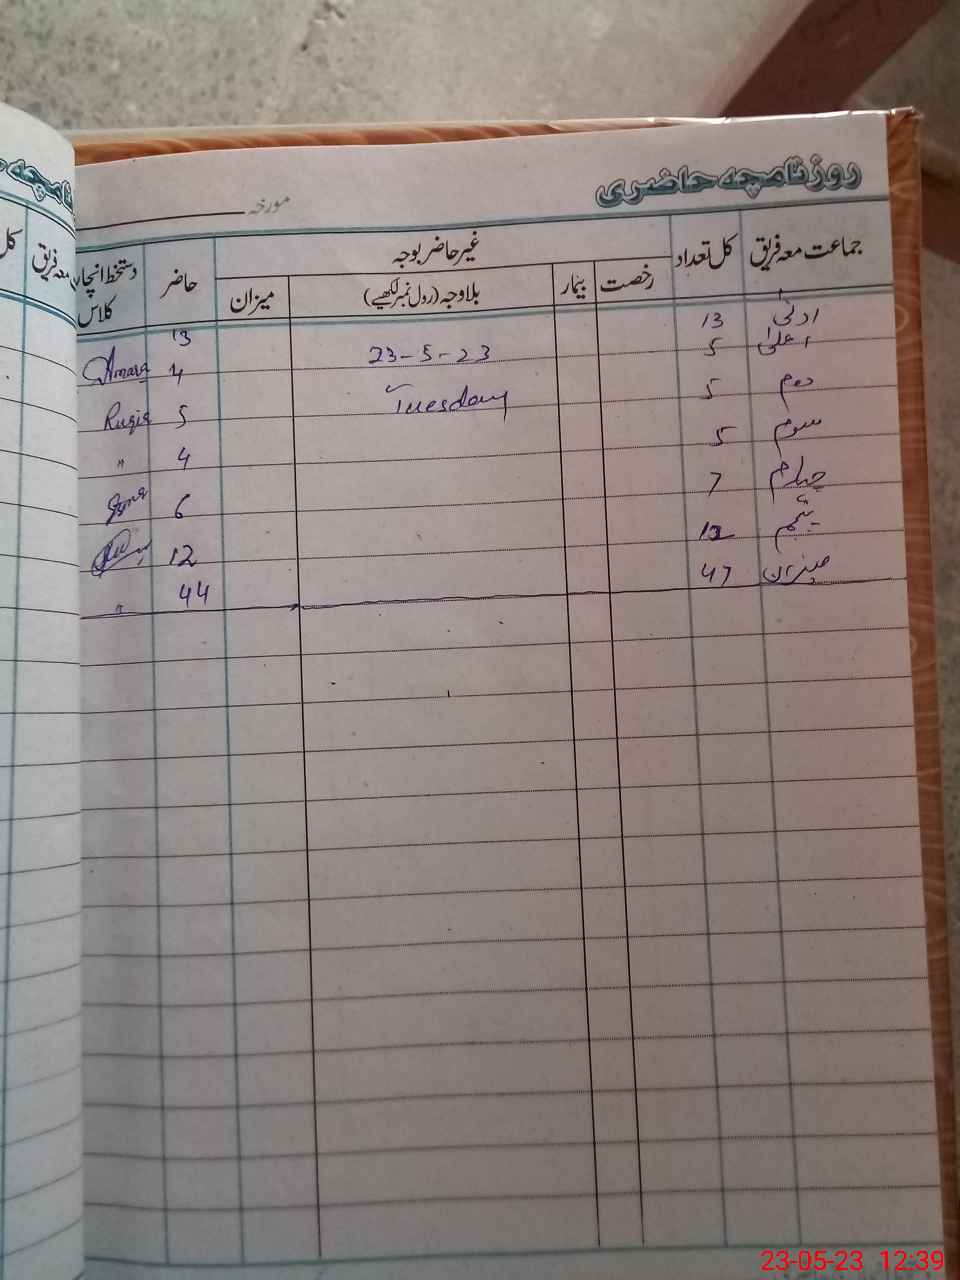 روزنامچہ حاضری
مورخہ
جماعت معہ فریق کل تعداد غیر حاضر بوجہ حاضر دستخط انچارج کلاس
رخصت بیمار بلاوجہ (رول نمبر لکھیے) میزان
ادنیٰ 13 13
اعلیٰ 5 23-5-23 4 Amara
دوم 5 Tuesday 5 Ruqia
سوم 5 4 "
چہارم 7 6
پنجم 12 12
میزان 47 44 "
معہ فریق
کل
23-05-23 12:39